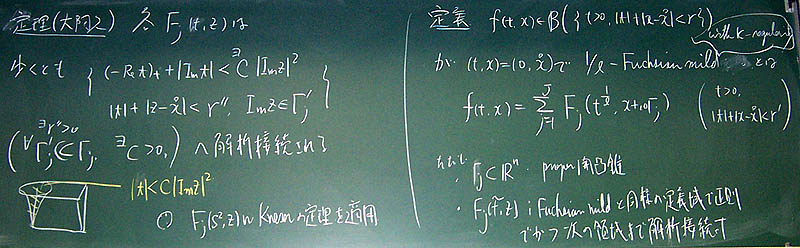 定理(大阿久) 各 F_j(t,z) は
少くとも { (-Re t)_+ + |Im t| < ^∃C |Im z|^2
|t| + |z-x̊| < r'', Im z ∈ Γ_j' }
(^∀Γ_j' ⋐ Γ_j, ^∃r''>0, ^∃C>0,) へ解析接続される
|t| < C|Im z|^2
F_j(s^2,z) に の定理を適用
定義 f(t,x) ∈ B({t>0, |t|+|x-x̊|<r'})
が (t,x)=(0,x̊) で 1/ℓ-Fuchsian mild とは
f(t,x) = Σ_{j=1}^{J} F_j(t^{1/ℓ}, x+i0Γ_j) (t>0, |t|+|x-x̊|<r')
ただし
・Γ_j ⊂ ℝ^n proper 開凸錐
・F_j(t,z) ; Fuchsian mild と同様の定義域で正則
でかつ次の領域まで解析接続